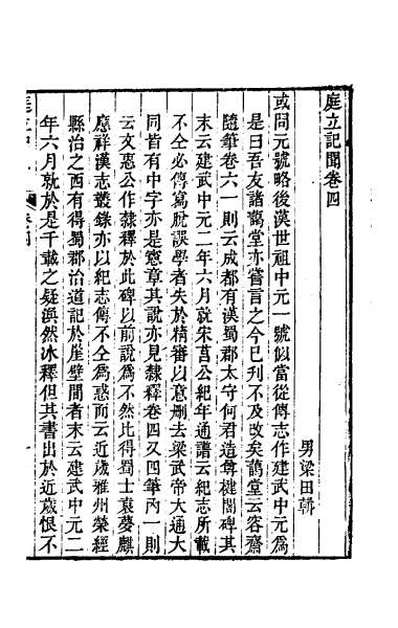 庭立記聞卷四
男梁田耔
或問元號略後漢世祖中元一號似當從傳志作建武中元爲
是曰吾友諸藹堂亦嘗言之今已刊不及改矣藹堂云容齋
隨筆卷六一則云成都有漢蜀郡太守何君造尊楗閣碑其
末云建武中元二年六月就宋莒公紀年通譜云紀志所載
不仝必傳寫脫誤學者失於精審以意刪去梁武帝大通大
同皆有中字亦是憲章其說亦見隸釋卷四又四筆內一則
云文惠公作隸釋於此碑以前說爲不然比得蜀士袁夢麒
應祥漢志叢錄亦以紀志傳不仝爲惑而云近歲雅州榮經
縣治之西有得蜀郡治道記於崖壁間者末云建武中元二
年六月就於是千載之疑渙然冰釋但其書出於近歲恨不
庭立